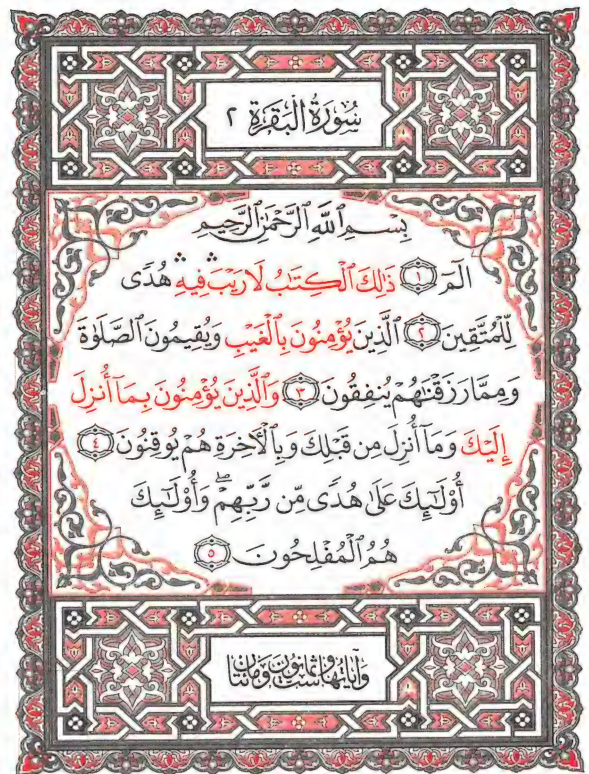 سُورَةُ الْبَقَرَةِ ٢
بِسْمِ ٱللَّهِ ٱلرَّحْمَٰنِ ٱلرَّحِيمِ
الٓمٓ ١ ذَٰلِكَ ٱلْكِتَٰبُ لَا رَيْبَ ۛ فِيهِ ۛ هُدًى
لِّلْمُتَّقِينَ ٢ ٱلَّذِينَ يُؤْمِنُونَ بِٱلْغَيْبِ وَيُقِيمُونَ ٱلصَّلَوٰةَ
وَمِمَّا رَزَقْنَٰهُمْ يُنفِقُونَ ٣ وَٱلَّذِينَ يُؤْمِنُونَ بِمَآ أُنزِلَ
إِلَيْكَ وَمَآ أُنزِلَ مِن قَبْلِكَ وَبِٱلْأَخِرَةِ هُمْ يُوقِنُونَ ٤
أُوْلَٰٓئِكَ عَلَىٰ هُدًى مِّن رَّبِّهِمْ ۖ وَأُوْلَٰٓئِكَ
هُمُ ٱلْمُفْلِحُونَ ٥
وَآيَاتُهَا سِتٌّ وَثَمَانُونَ وَمِائَتَانِ